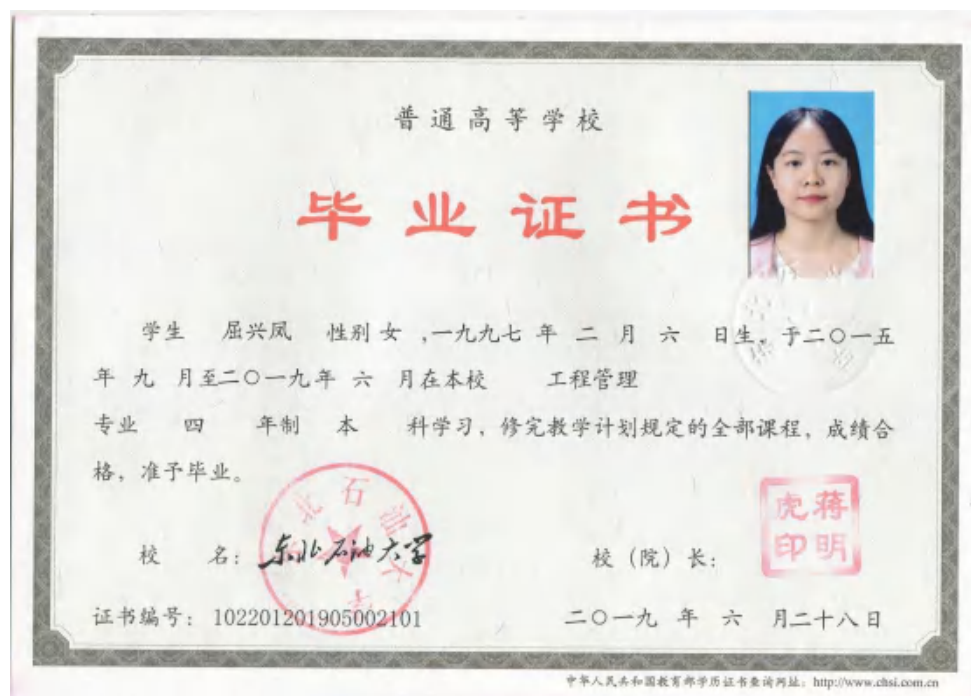 普通高等学校
毕业证书
学生 屈兴凤 性别 女 ,一九九七 年 二 月 六 日生，于二〇一五
年 九 月至二〇一九年 六 月在本校 工程管理
专业 四 年制 本 科学习，修完教学计划规定的全部课程，成绩合
格，准予毕业。
东北石油大学
虎蒋
印明
校 名：东北石油大学 校（院）长：
证书编号：102201201905002101 二〇一九 年 六 月二十八日
中华人民共和国教育部学历证书查询网址：http://www.chsi.com.cn